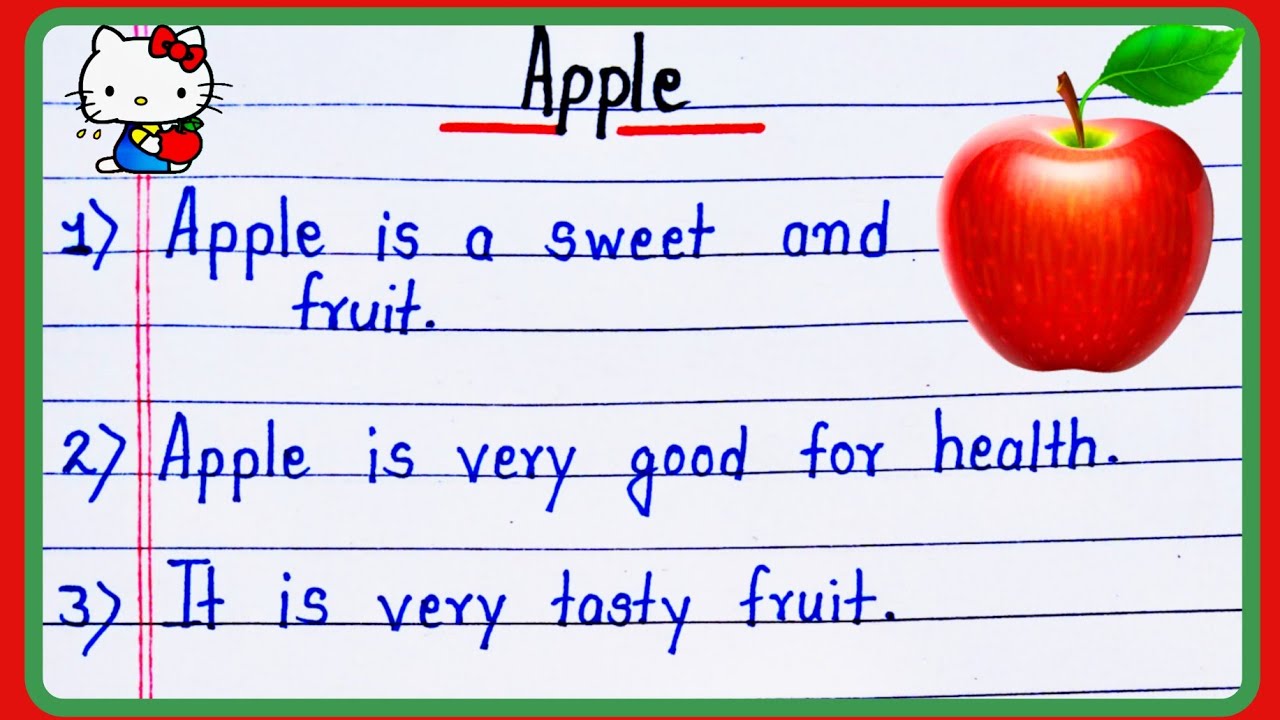 Apple
1) Apple is a sweet and
fruit.
2) Apple is very good for health.
3) It is very tasty fruit.